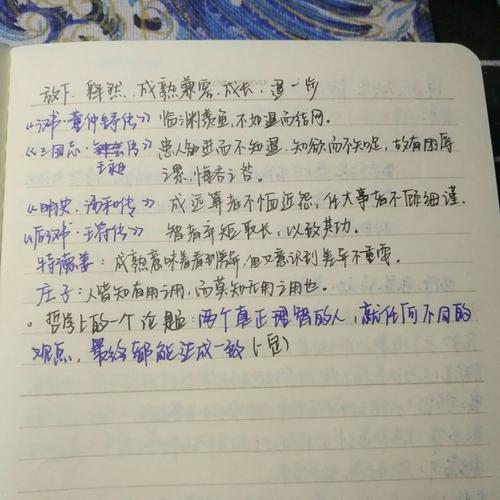 放下、释然、成熟兼容、成长，退一步
《汉书·董仲舒传》 临渊羡鱼，不如退而结网。
《三国志·王昶传》 患人知进而不知退，知欲而不知足，故有困辱
之累，悔吝之咎。
《明史·汤和传》 成远算者不恤近怨，任大事者不顾细谨。
《后汉书·王符传》 智者弃短取长，以致其功。
特德姜：成熟意味着看到差异，但又意识到差异不重要。
庄子：人皆知有用之用，而莫知无用之用也。
。哲学上的一个论题：两个真正理智的人，就任何不同的
观点，最终都能达成一致